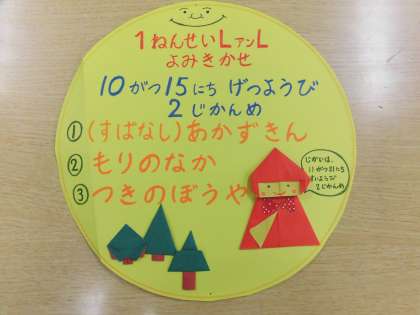 1ねんせいLアンL
よみきかせ
10がつ15にち げつようび
2じかんめ
①(すばなし)あかずきん
②もりのなか
③つきのぼうや
じかいは、
11がつ21にち
すいようび
2じかんめ